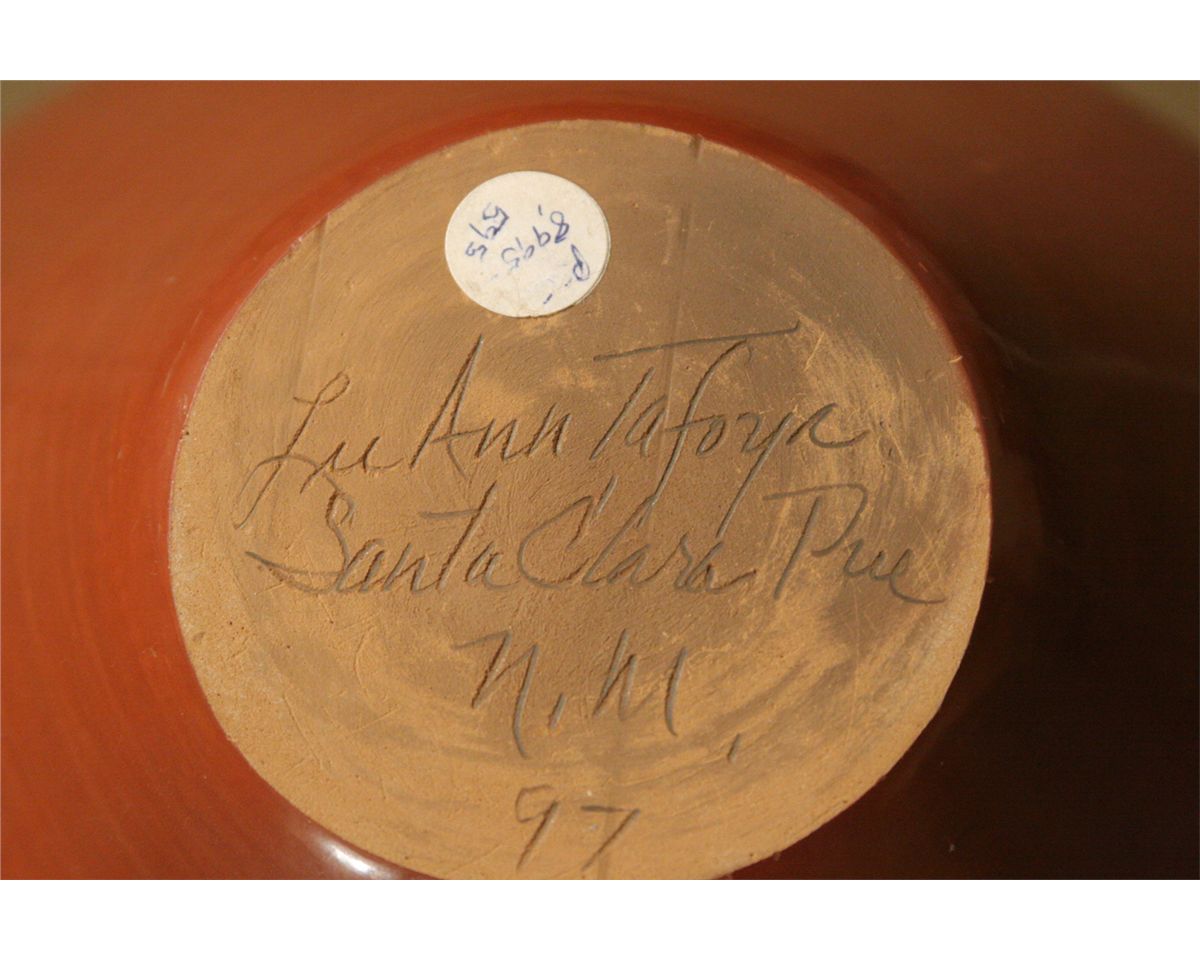 595
8,995
P
LuAnn Tafoya
Santa Clara Pue
N.M.
97